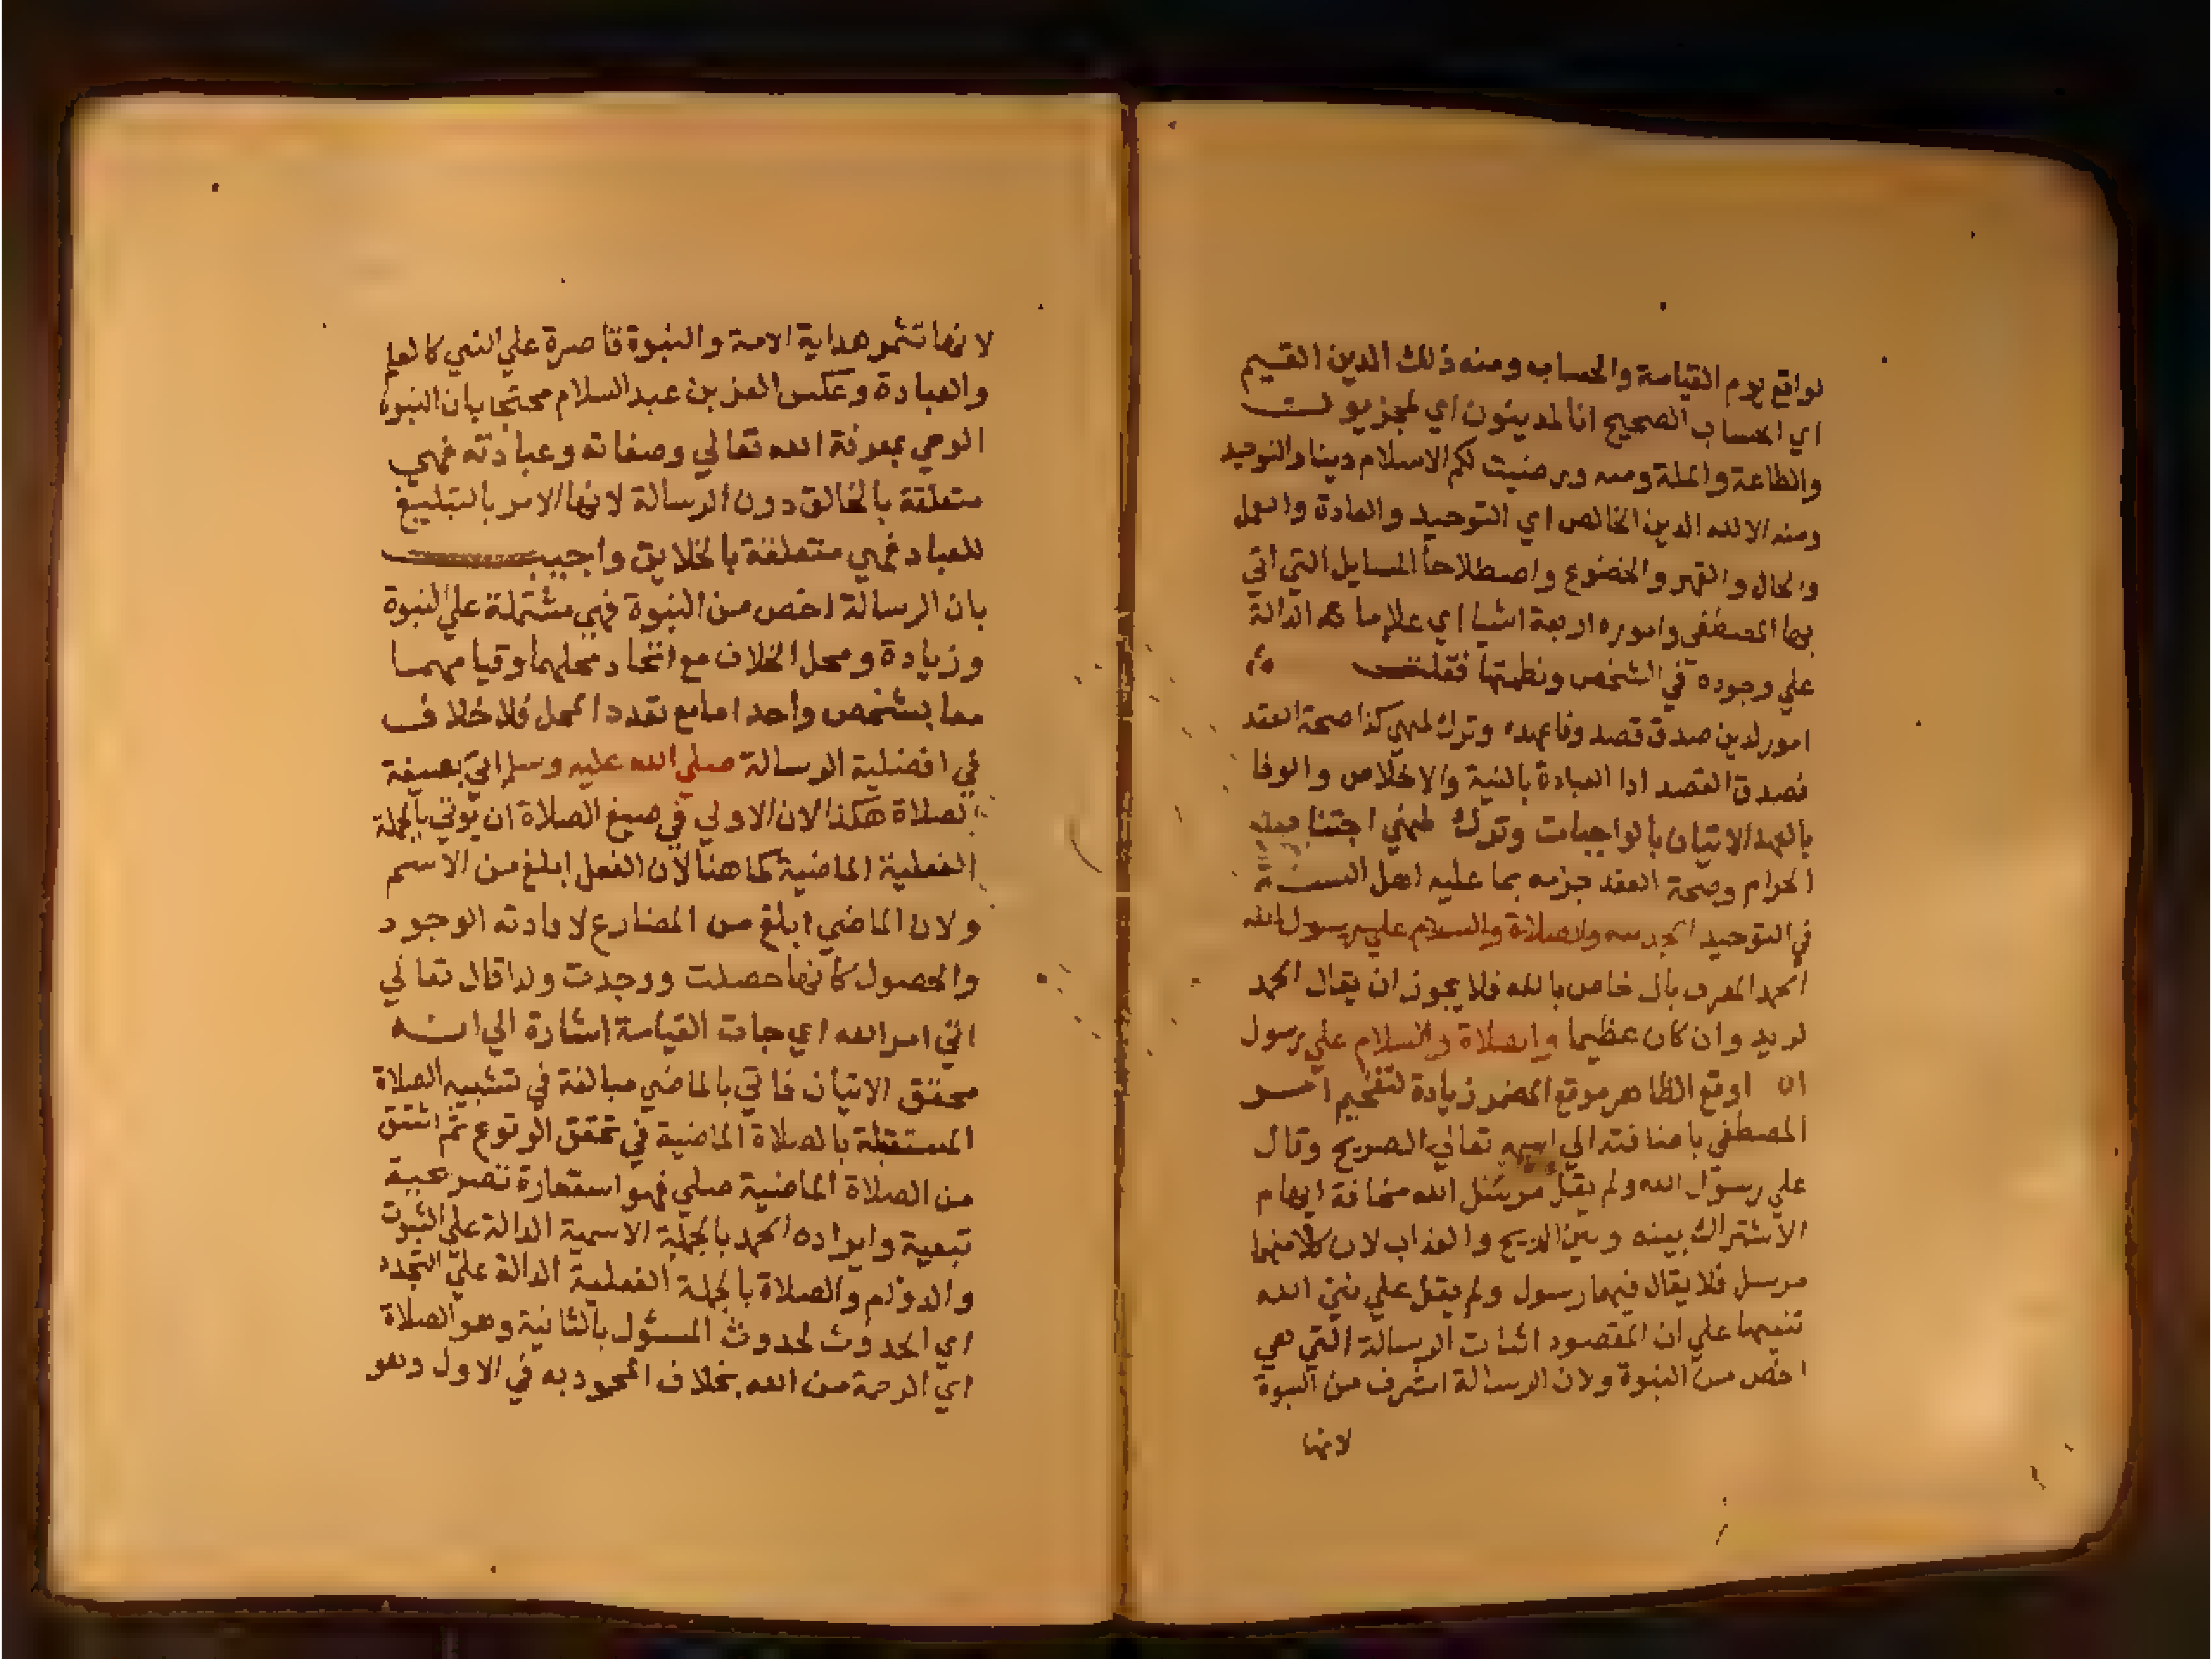 لواقع يوم القيامة والحساب ومنه ذلك الدين القيم
اي الحساب الصحيح انا لمدينون اي لمجزيون
والطاعة والملة ومنه ورضيت لكم الاسلام دينا والتوحيد
ومنه الا لله الدين الخالص اي التوحيد والعادة والعمل
والحال والقهر والخضوع واصطلاحا المسايل التي اتي
بها المصطفى واموره اربعة اشيا اي علاماته الدالة
علي وجوده في الشخص ونظمتها فقلت
امور لدين صدق قصد وفا عهد وترك لمنهي كذا صحة العقد
فصدق القصد ادا العبادة بالنية والاخلاص والوفا
بالعهد الاتيان بالواجبات وترك المنهي اجتناب
الحرام وصحة العقد جزمه بما عليه اهل السنة
في التوحيد الحمد لله والصلاة والسلام علي رسول الله
الحمد المعرف بال خاص بالله فلا يجوز ان يقال الحمد
لزيد وان كان عظيما والصلاة والسلام علي رسول
الله اوقع الظاهر موقع المضمر زيادة لتفخيم امر
المصطفي باضافته الي اسمه تعالي الصريح وقال
علي رسول الله ولم يقل مرسل الله مخافة ايهام
الاشتراك بينه وبين الريح والعذاب لان كلا منهما
مرسل فلا يقال فيهما رسول ولم يقل علي نبي الله
تنبيها علي ان المقصود اثبات الرسالة التي هي
اخص من النبوة ولان الرسالة اشرف من النبوة
لانها
لانها تثمر هداية الامة والنبوة قاصرة علي النبي كالعلم
والعبادة وعكس العز بن عبد السلام محتجا بان النبوة
الوحي بمعرفة الله تعالي وصفاته وعبادته فهي
متعلقة بالخالق دون الرسالة لانها الامر بالتبليغ
للعباد فهي متعلقة بالخلايق واجيب
بان الرسالة اخص من النبوة فهي مشتملة علي النبوة
وزيادة ومحل الخلاف مع اتحاد محلهما وقيامهما
معا بشخص واحد اما مع تعدد المحل فلا خلاف
في افضلية الرسالة صلي الله عليه وسلم اتي بصيغة
الصلاة هكذا لان الاولي في صيغ الصلاة ان يوتي بالجملة
الفعلية الماضية كما هنا لان الفعل ابلغ من الاسم
ولان الماضي ابلغ من المضارع لافادته الوجود
والحصول كانها حصلت ووجدت ولذا قال تعالي
اتي امر الله اي جات القيامة اشارة الي انه
محقق الاتيان فاتي بالماضي مبالغة في تشبيه الصلاة
المستقبلة بالصلاة الماضية في تحقق الوقوع ثم اشتق
من الصلاة الماضية صلي فهو استعارة تصريحية
تبعية وايراده الحمد بالجملة الاسمية الدالة علي الثبوت
والدوام والصلاة بالجملة الفعلية الدالة علي التجدد
اي الحدوث لحدوث المسئول بالثانية وهو الصلاة
اي الرحمة من الله بخلاف المحمود به في الاول وهو